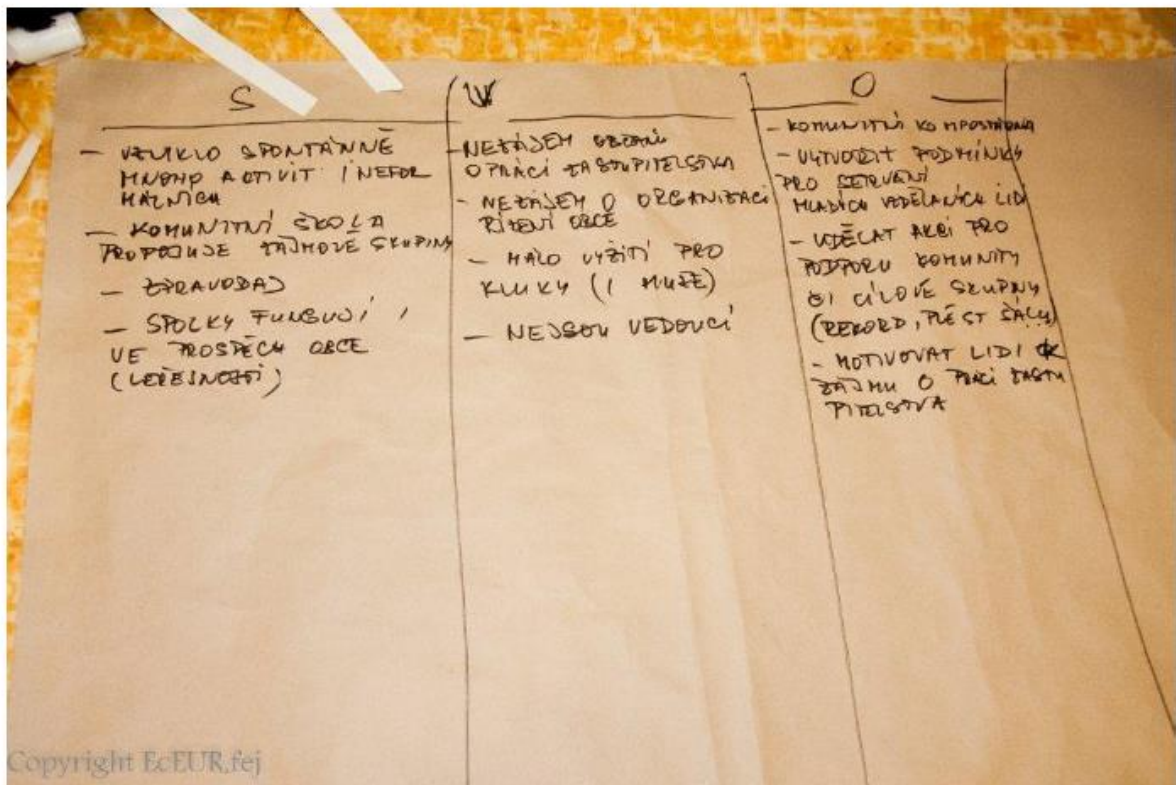 S
– VZNIKLO SPONTÁNNĚ
MNOHO AKTIVIT I NEFOR
MÁLNÍCH
– KOMUNITNÍ ŠKOLA
PROPOJUJE ZÁJMOVÉ SKUPINY
– ZPRAVODAJ
– SPOLKY FUNGUJÍ I
VE PROSPĚCH OBCE
(VEŘEJNOSTI)
W
– NEZÁJEM OBČANŮ
O PRÁCI ZASTUPITELSTVA
– NEZÁJEM O ORGANIZACI
ŘÍZENÍ OBCE
– MÁLO VYŽITÍ PRO
KLUKY (I MUŽE)
– NEJSOU VEDOUCÍ
O
– KOMUNITNÍ KOMPOSTÁRNA
– VYTVOŘIT PODMÍNKY
PRO SETRVÁNÍ
MLADÝCH VZDĚLANÝCH LIDÍ
– UDĚLAT AKCI PRO
PODPORU KOMUNITY
ČI CÍLOVÉ SKUPINY
(REKORD, PLÉST ŠÁLY)
– MOTIVOVAT LIDI K
ZÁJMU O PRÁCI ZASTU
PITELSTVA
Copyright EcEUR,fej